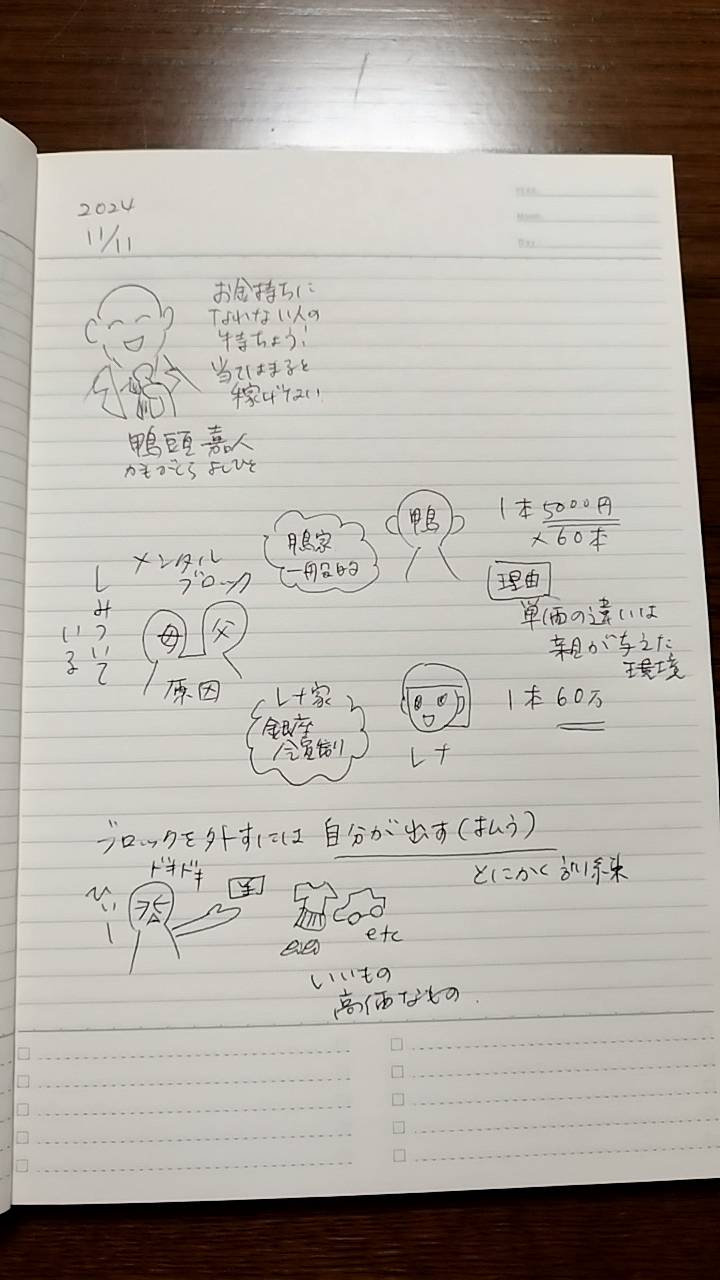 2024
11/11
お金持ちに
なれない人の
特ちょう!
当てはまると
稼げない
鴨頭 嘉人
かもがしら よしひと
鴨家
一般的
鴨
1本 5000円
×60本
理由
単価の違いは
親が与えた
環境
メンタル
ブロック
しみついて
いる
母
父
原因
レナ家
銀座
レナ
1本 60万
ブロックを外すには 自分が出す(はらう)
とにかく 訓練
ドキドキ
ひぃー
etc
いいもの
高価なもの.